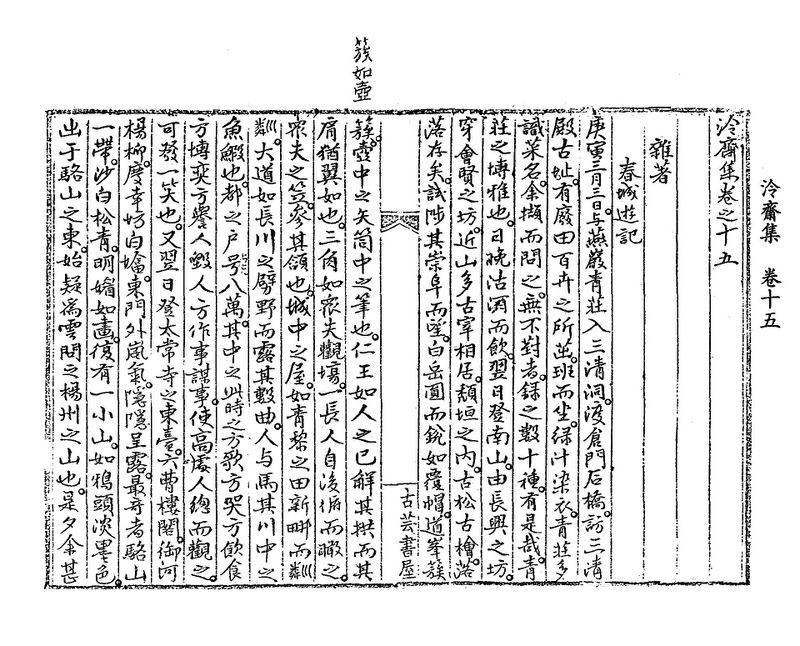 泠齋集 卷十五
泠齋集卷之十五
雜著
春城遊記
庚寅三月三日与燕巖青莊入三清洞渡倉門石橋訪三清
殿古址有廢田百卉之所茁班而坐綠汁染衣青莊多
識菜名余擷而問之無不對者錄之數十種有是哉青
莊之博雅也日晚沽酒而飲翌日登南山由長興之坊
穿會賢之坊近山多古宰相居頹垣之內古松古檜落
落存矣試陟其崇阜而望白岳圓而銳如覆帽道峯簇
古芸書屋
簇如壺
簇壺中之矢筒中之筆也仁王如人之已解其拱而其
肩猶翼如也三角如衆夫觀場一長人自後俯而瞰之
衆夫之笠參其頷也城中之屋如青黎之田新畊而粼
粼大道如長川之劈野而露其數曲人与馬其川中之
魚鰕也都之戶号八萬其中之此時之方歌方哭方飲食
方博奕方譽人毀人方作事謀事使高處人總而觀之
可發一笑也又翌日登太常寺之東臺六曹樓闕御河
楊柳慶幸坊白墖東門外嵐氣隱隱呈露最奇者駱山
一帶沙白松青明媚如畫復有一小山如鴉頭淡墨色
出于駱山之東始疑爲雲間之楊州之山也是夕余甚